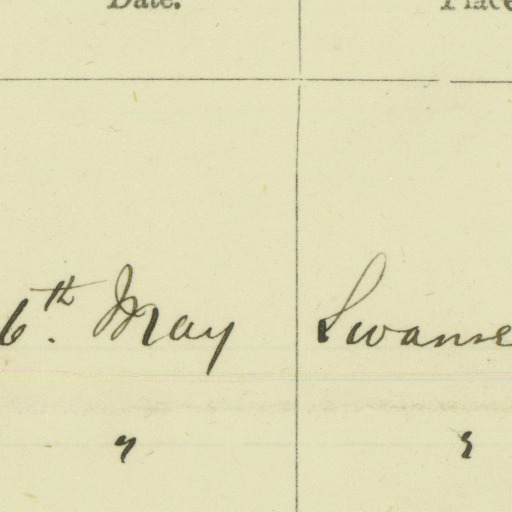 Date. Place
6th. May Swanse
" "